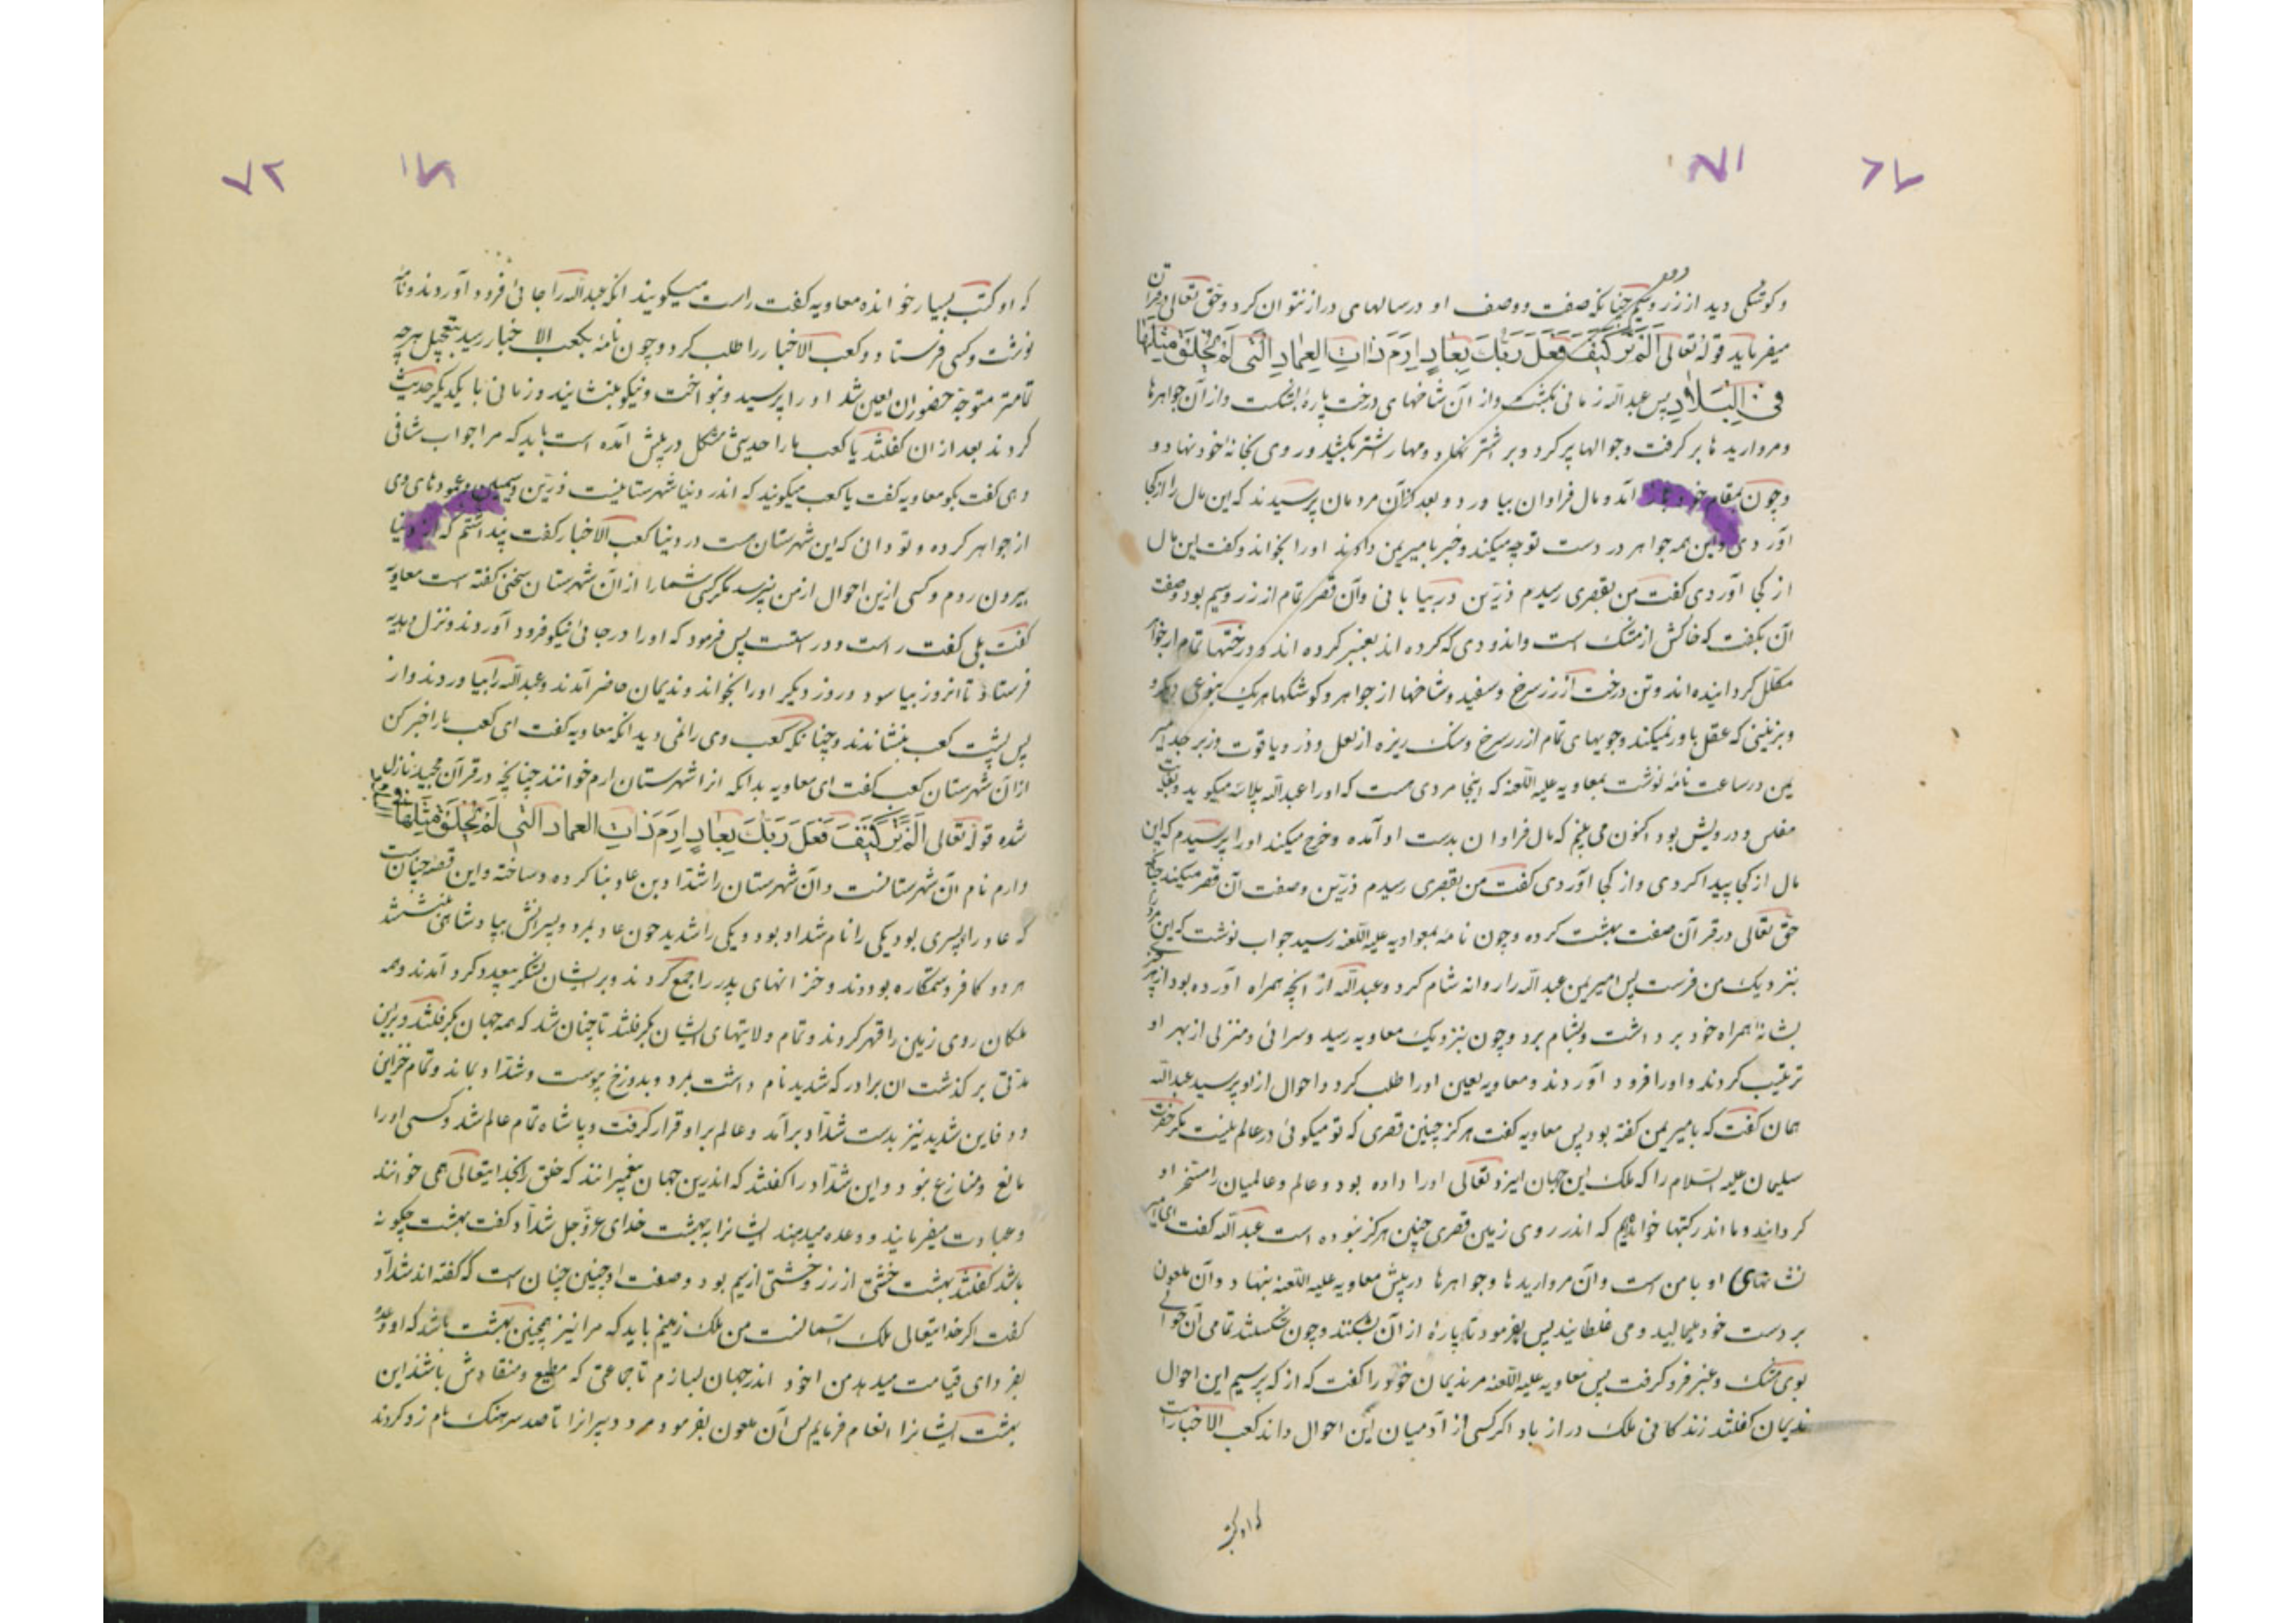 وکوشکی دید از زر وسیم چنانکه صفت ووصف او درسالهای دراز نتوان کرد وحق تعالی در قرآن
میفرماید قوله تعالی اَلَمْ تَرَ کَیْفَ فَعَلَ رَبُّکَ بِعَادٍ اِرَمَ ذَاتِ العِمَادِ الَّتی لَمْ یُخْلَقْ مِثْلُهَا
فی البِلَادِ پس عبدالله زمانی بگشت واز آن شاخهای درخت پارهٔ بشکست واز آن جواهرها
ومرواریدها بر گرفت وجوالها پر کرد وبر شتر نهاد ومهار شتر بکشید وروی بخانهٔ خود نهاد و
وچون بمقام خود باز آمد ومال فراوان بیاورد وبعد از آن مردمان پرسیدند که این مال را از کجا
آوردی واین همه جواهر در دست تو چه میکند وخبر بامیر یمن دادند اورا بخواند وکفت این مال
از کجا آوردی کفت من بقصری رسیدم زرّین در بیابانی وآن قصر تمام از زر وسیم بود وصفت
آن بکفت که خاکش از مشک است واندودی که کرده اند بعنبر کرده اند ودرختها تمام از جواهر
مکلل کردانیده اند وتن درخت از زر سرخ وسفید وشاخها از جواهر وکوشکها هر یک بنوعی دیکر
وبزینتی که عقل باور نمیکند وجویهای تمام از زر سرخ وسنک ریزه از لعل ودُر ویاقوت وزبرجد امیر
یمن در ساعت نامه نوشت بمعاویه علیه اللعنه که اینجا مردی هست که اورا عبدالله میکوید
مفلس ودرویش بود اکنون می بینم که مال فراوان بدست او آمده وخرج میکند اورا پرسیدم که این
مال از کجا پیدا کردی واز کجا آوردی کفت من بقصری رسیدم زرّین وصفت آن قصر میکند چنانکه
حق تعالی در قرآن صفت بهشت کرده وچون نامه بمعاویه علیه اللعنه رسید جواب نوشت که این مرد را
بنزدیک من فرست پس امیر یمن عبدالله را روانه شام کرد وعبدالله از آنچه همراه آورده بود از بهر
نشانه همراه خود برداشت وبشام برد وچون بنزدیک معاویه رسید وسرائی ومنزلی از بهر او
ترتیب کردند واورا فرود آوردند ومعاویه لعین اورا طلب کرد واحوال ازو پرسید عبدالله
همان کفت که بامیر یمن کفته بود پس معاویه کفت هرکز چنین قصری که تو میکوئی در عالم نیست مکر حضرت
سلیمان علیه السلام را که ملک این جهان ایزد تعالی اورا داده بود وعالم وعالمیان را مسخر او
کردانید وما اندر کتبها خوانده‌ایم که اندر روی زمین قصری چنین هرکز نبوده است عبدالله کفت ای امیر
نشانهای او بامن است وآن مرواریدها وجواهرها در پیش معاویه علیه اللعنه بنهاد وآن ملعون
بر دست خود میمالید ومی غلطانید پس بفرمود تا پارهٔ از آن بشکنند وچون بشکستند تمامی آن حوالی
بوی مشک وعنبر فرو کرفت پس معاویه علیه اللعنه مر ندیمان خود را کفت که از که پرسیم این احوال
ندیمان کفتند زندکانی ملک دراز باد اکر کسی از آدمیان این احوال داند کعب الاخبار است
که او کتب
که او کتب بسیار خوانده معاویه کفت راست میکویند آنکه عبدالله را جائی فرود آوردند ونامه
نوشت وکسی فرستاد وکعب الاخبار را طلب کرد وچون نامه بکعب الاخبار رسید بتعجیل هرچه
تمامتر متوجه حضور آن لعین شد او را پرسید وبنواخت ونیکو بنشانید وزمانی با یکدیکر حدیث
کردند بعد از آن کفتند یا کعب مارا حدیثی مشکل در پیش آمده است باید که مرا جواب شافی
دهی کفت بکو معاویه کفت یا کعب میکویند که اندر دنیا شهرستانیست زرّین وسیمین وعمودهای وی
از جواهر کرده وتو دانی که این شهرستان هست در دنیا کعب الاخبار کفت پنداشتم که از دنیا
بیرون روم وکسی ازین احوال از من نپرسد مکر کسی شمارا از آن شهرستان سخنی کفته است معاویه
کفت بلی کفت راست ودرستست پس فرمود که اورا در جائی نیکو فرود آوردند ونزل وهدیه
فرستاد تا آنروز بیاسود وروز دیکر اورا بخواند وندیمان حاضر آمدند وعبدالله را بیاوردند واز
پس پشت کعب بنشاندند وچنانکه کعب وی را نمی دید آنکه معاویه کفت ای کعب مارا خبر کن
از آن شهرستان کعب کفت ای معاویه بدانکه آنرا شهرستان ارم خوانند چنانچه در قرآن مجید نازل
شده قوله تعالی اَلَمْ تَرَ کَیْفَ فَعَلَ رَبُّکَ بِعَادٍ اِرَمَ ذَاتِ العماد الَّتی لَمْ یُخْلَقْ مِثْلُهَا
وارم نام آن شهرستانست وآن شهرستان را شداد بن عاد بنا کرده وساخته واین قصه چنان است
که عاد را دو پسری بود یکی را نام شداد بود ویکی را شدید چون عاد بمرد وپسرانش بپادشاهی بنشستند
هر دو کافر وستمکاره بودند وخزانهای پدر را جمع کردند وبر ایشان لشکر بیعدد کرد آمدند وهمه
ملکان روی زمین را قهر کردند وتمام ولایتهای ایشان بکرفتند تا چنان شد که همه جهان بکرفتند وبرین
مدتی بر کذشت آن برادر که شدید نام داشت بمرد وبدوزخ پیوست وشداد بماند وتمام خزاین
ودفاین شدید نیز بدست شداد برآمد وعالم بر او قرار کرفت وپاشاه تمام عالم شد وکسی اورا
مانع ومنازع نبود واین شداد را کفتند که اندرین جهان پیغمبرانند که خلق را بخدایتعالی همی خوانند
وعبادت میفرمایند ووعده میدهند ایشانرا به بهشت خدای عزوجل شداد کفت بهشت چکونه
باشد کفتند بهشت خشتی از زر وخشتی از سیم بود وصفت او چنین چنان است که کفته اند شداد
کفت اکر خدایتعالی ملک آسمانست من ملک زمینم باید که مرا نیز همچنین بهشت باشد که او وعده
بفردای قیامت میدهد من اخود اندر جهان بسازم تا جماعتی که مطیع ومنقادش باشند این
بهشت ایشانرا انعام فرمایم پس آن ملعون بفرمود مرد دبیرانرا تا صد سرهنک نام زد کردند